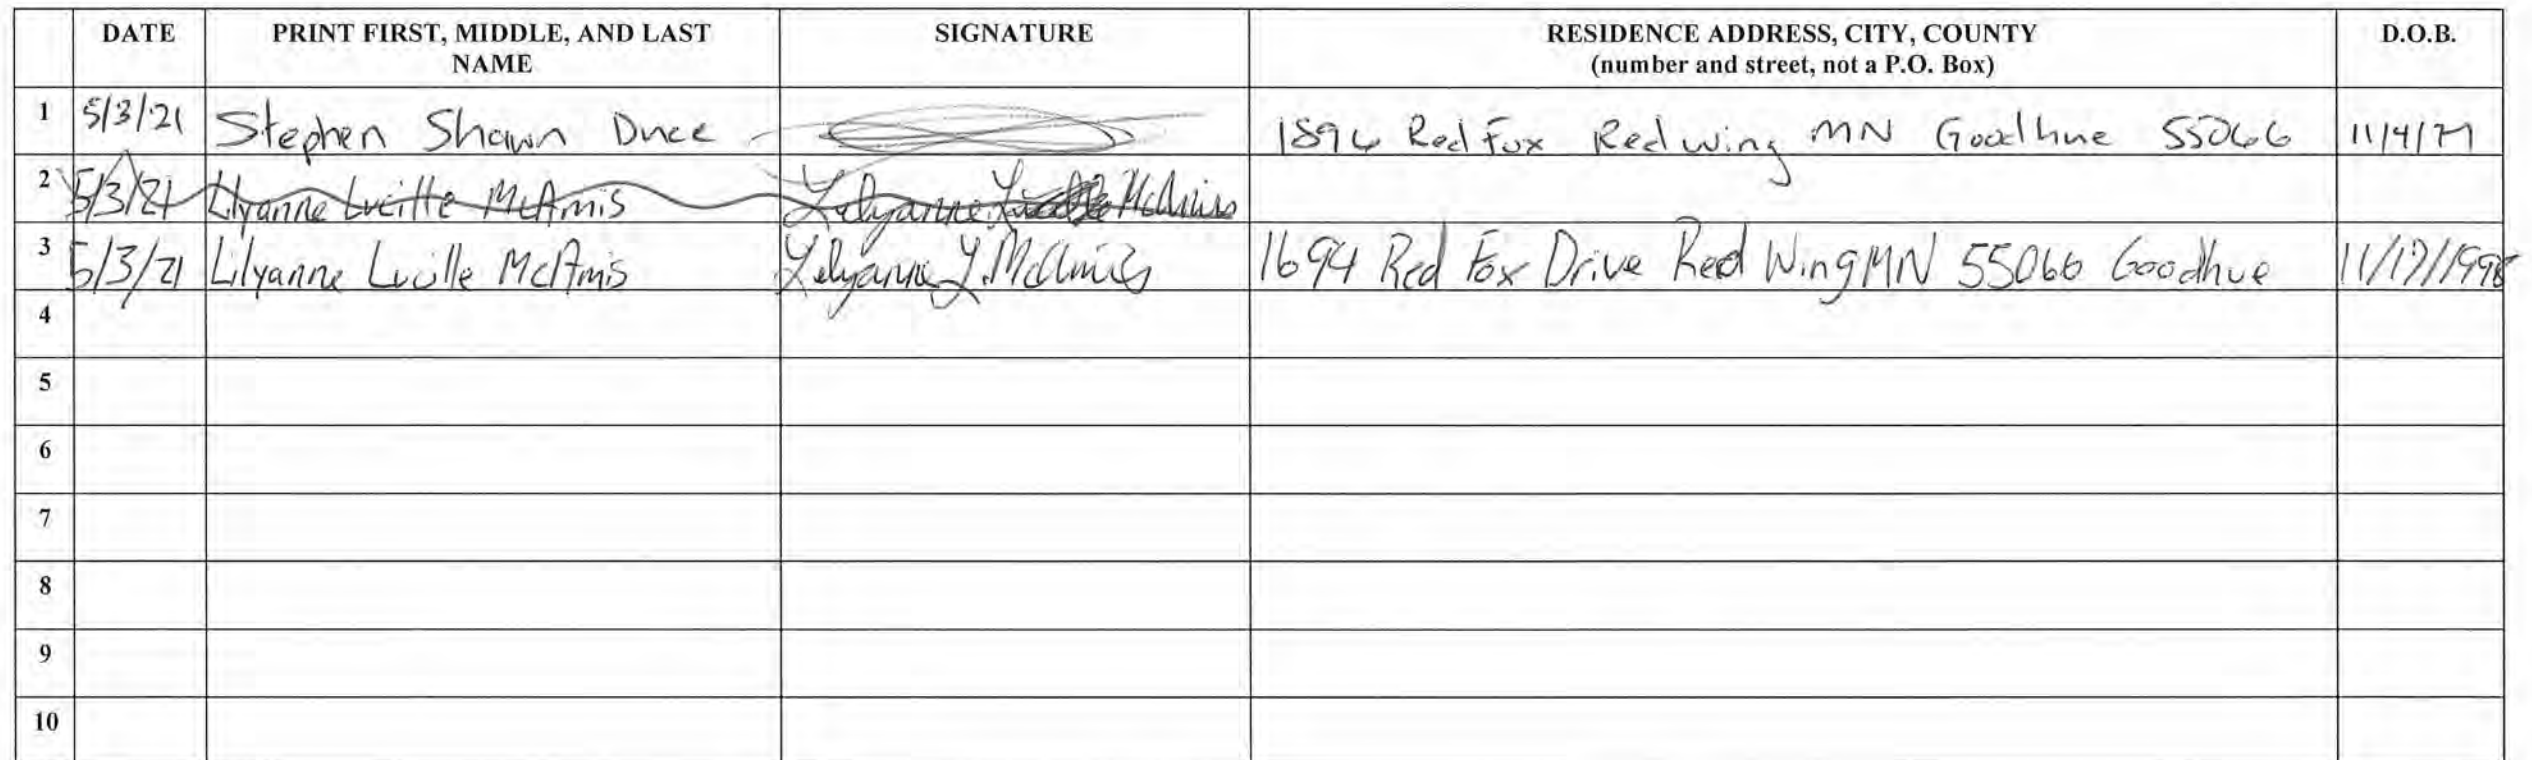 DATE PRINT FIRST, MIDDLE, AND LAST NAME SIGNATURE RESIDENCE ADDRESS, CITY, COUNTY (number and street, not a P.O. Box) D.O.B.
1 5/3/21 Stephen Shawn Duce Red Fox Red wing MN Goodhue 55066
2 5/3/21 Lilyanne Lucille McAmis Lilyanne Lucille McAmis
3 5/3/21 Lilyanne Lucille McAmis Lilyanne L. McAmis 1694 Red Fox Drive Red Wing MN 55066 Goodhue
4
5
6
7
8
9
10